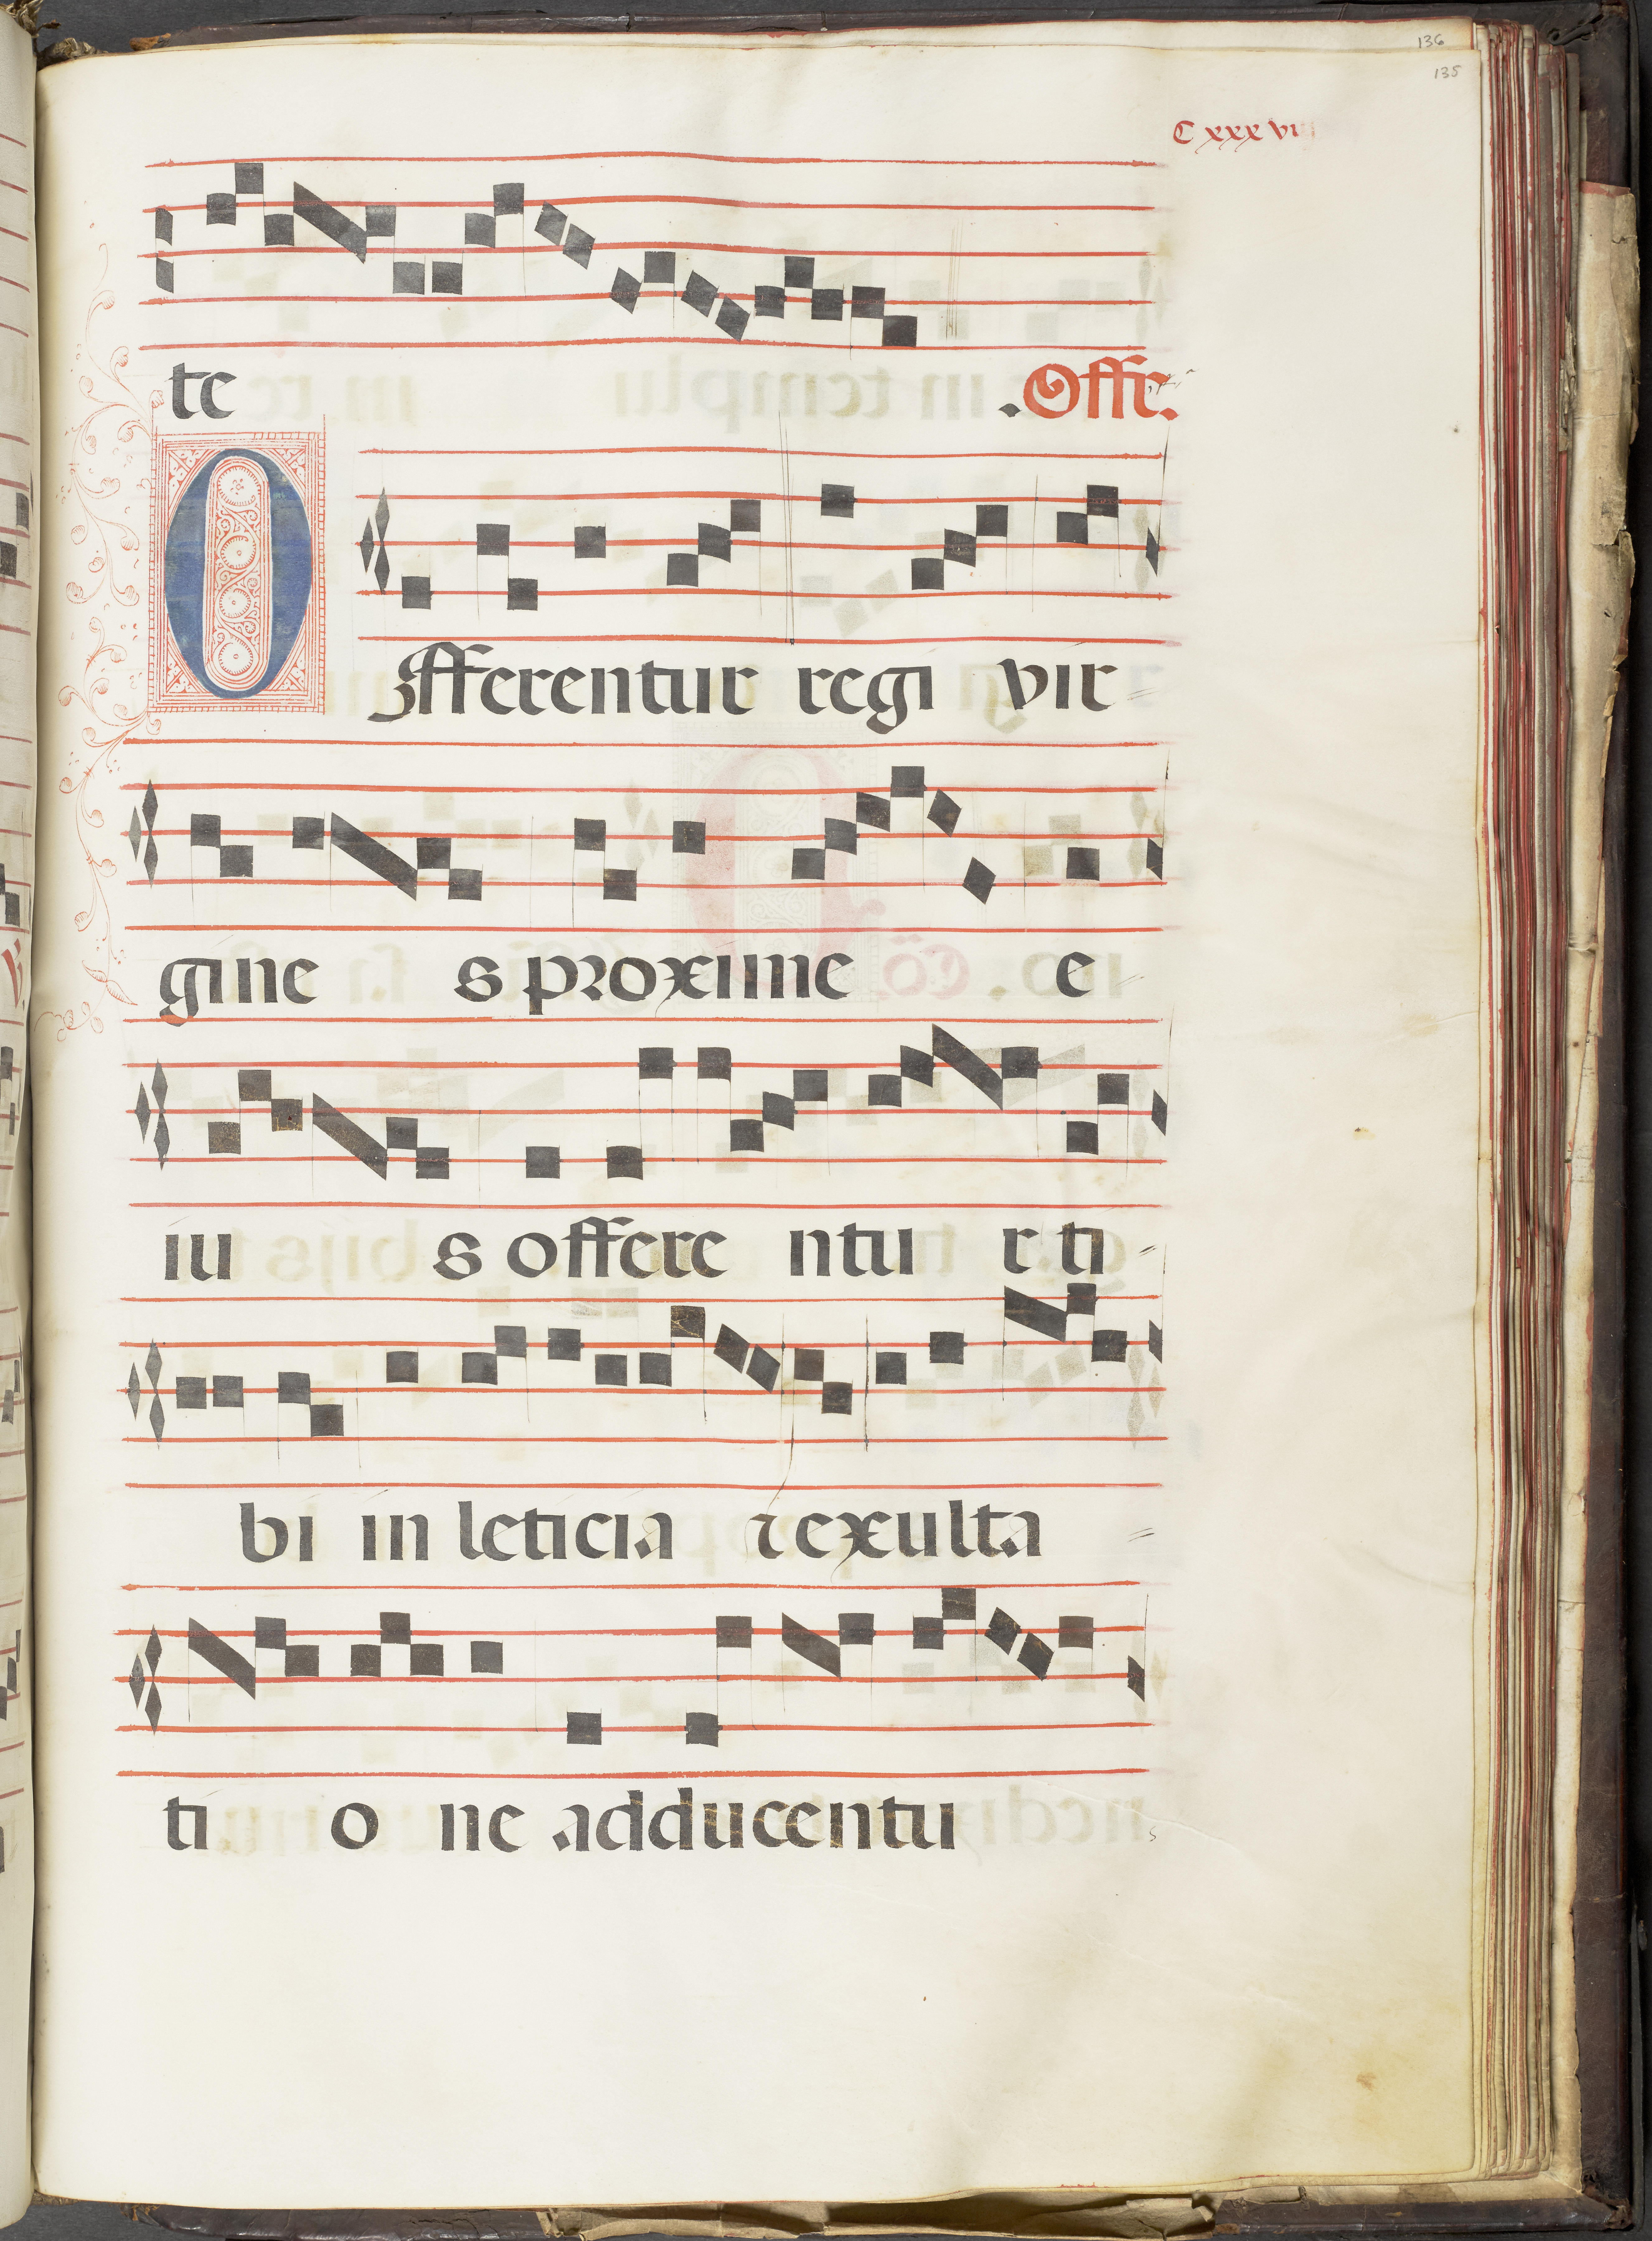 136
135
C xxx vi
te .Offr.
Offerentur regi vir=
gine s proxime e
iu s offere ntu r ti=
bi in leticia ⁊ exulta=
ti o ne adducentu